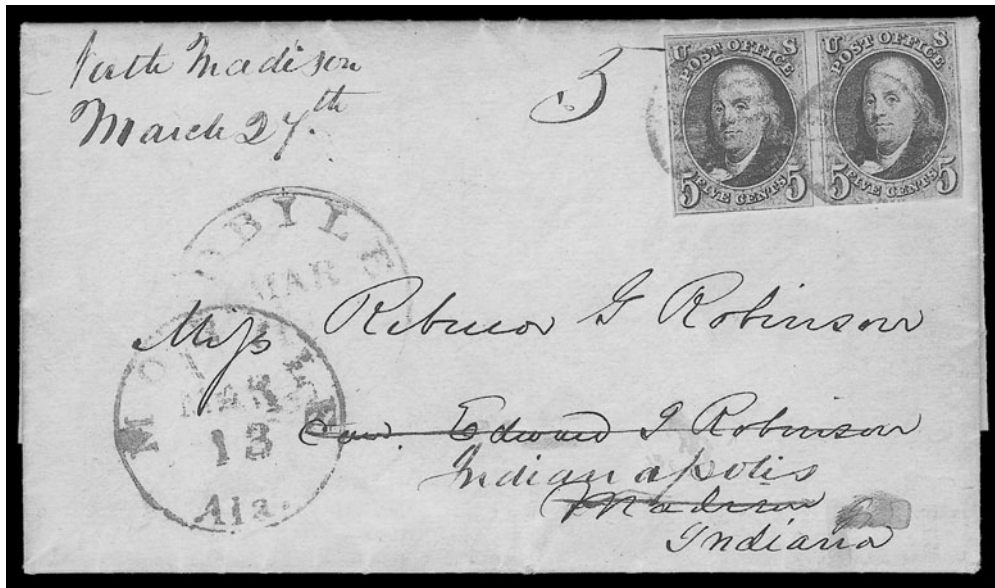 North Madison
March 27th
5
U S
POST OFFICE
5 FIVE CENTS 5
U S
POST OFFICE
5 FIVE CENTS 5
MOBILE
MAR
MOBILE
MAR
13
Ala.
Miss Rebecca G Robinson
Care. Edward G Robinson
Indianapolis
Madison
Indiana